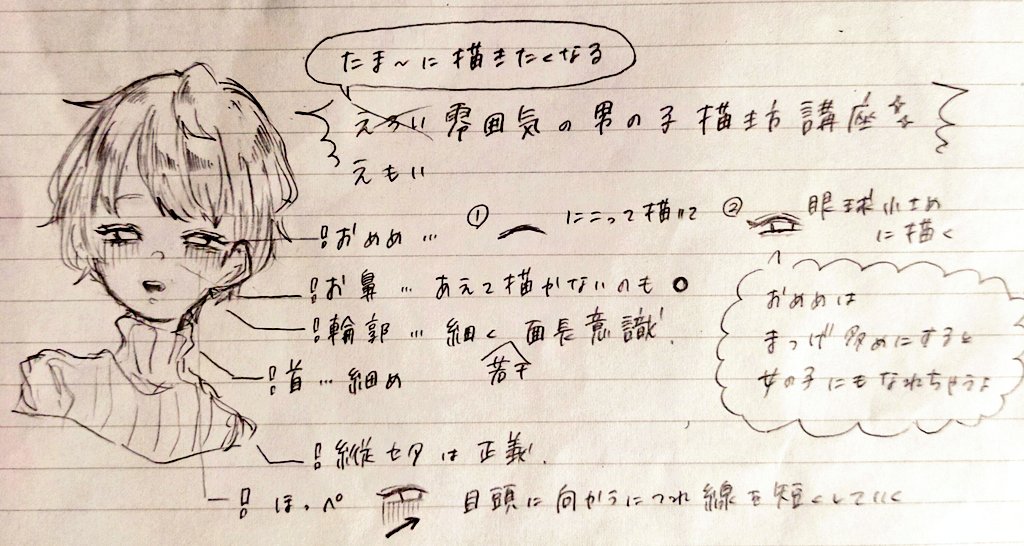 たま~に描きたくなる
えろい雰囲気の男の子描き方講座
えもい
おめめ… ① にこって描いて ② 眼球小さめ
に描く
お鼻… あえて描かないのも○
輪郭… 細く 面長意識!
若干
おめめは
まつげ多めにすると
女の子にもなれちゃうよ
首…細め
縦セタは正義.
ほっぺ 目頭に向かうにつれ線を短くしていく